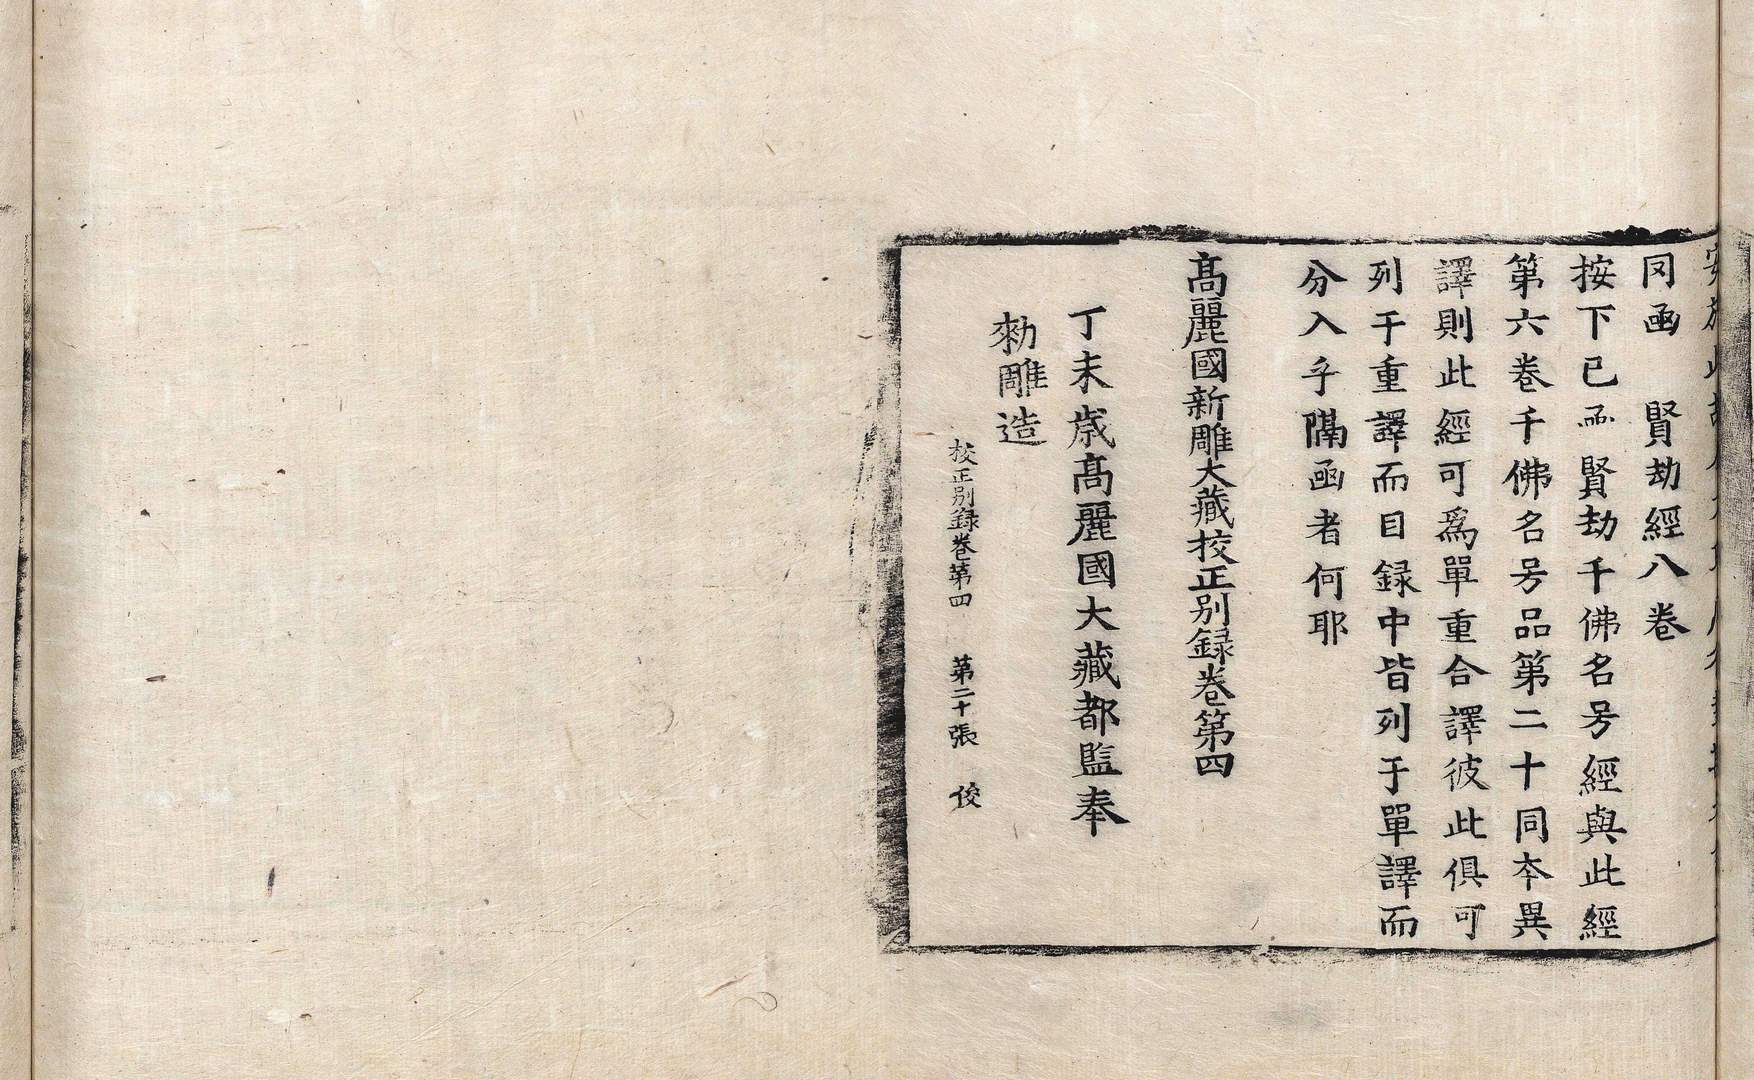 同函　賢劫經八卷
按下已𠕋賢劫千佛名号經與此經
第六卷千佛名号品第二十同本異
譯則此經可爲單重合譯彼此俱可
列于重譯而目録中皆列于單譯而
分入乎隔函者何耶
高麗國新雕大藏校正別録卷第四
丁未歲高麗國大藏都監奉
勑雕造
校正別録卷第四　第二十張　俊